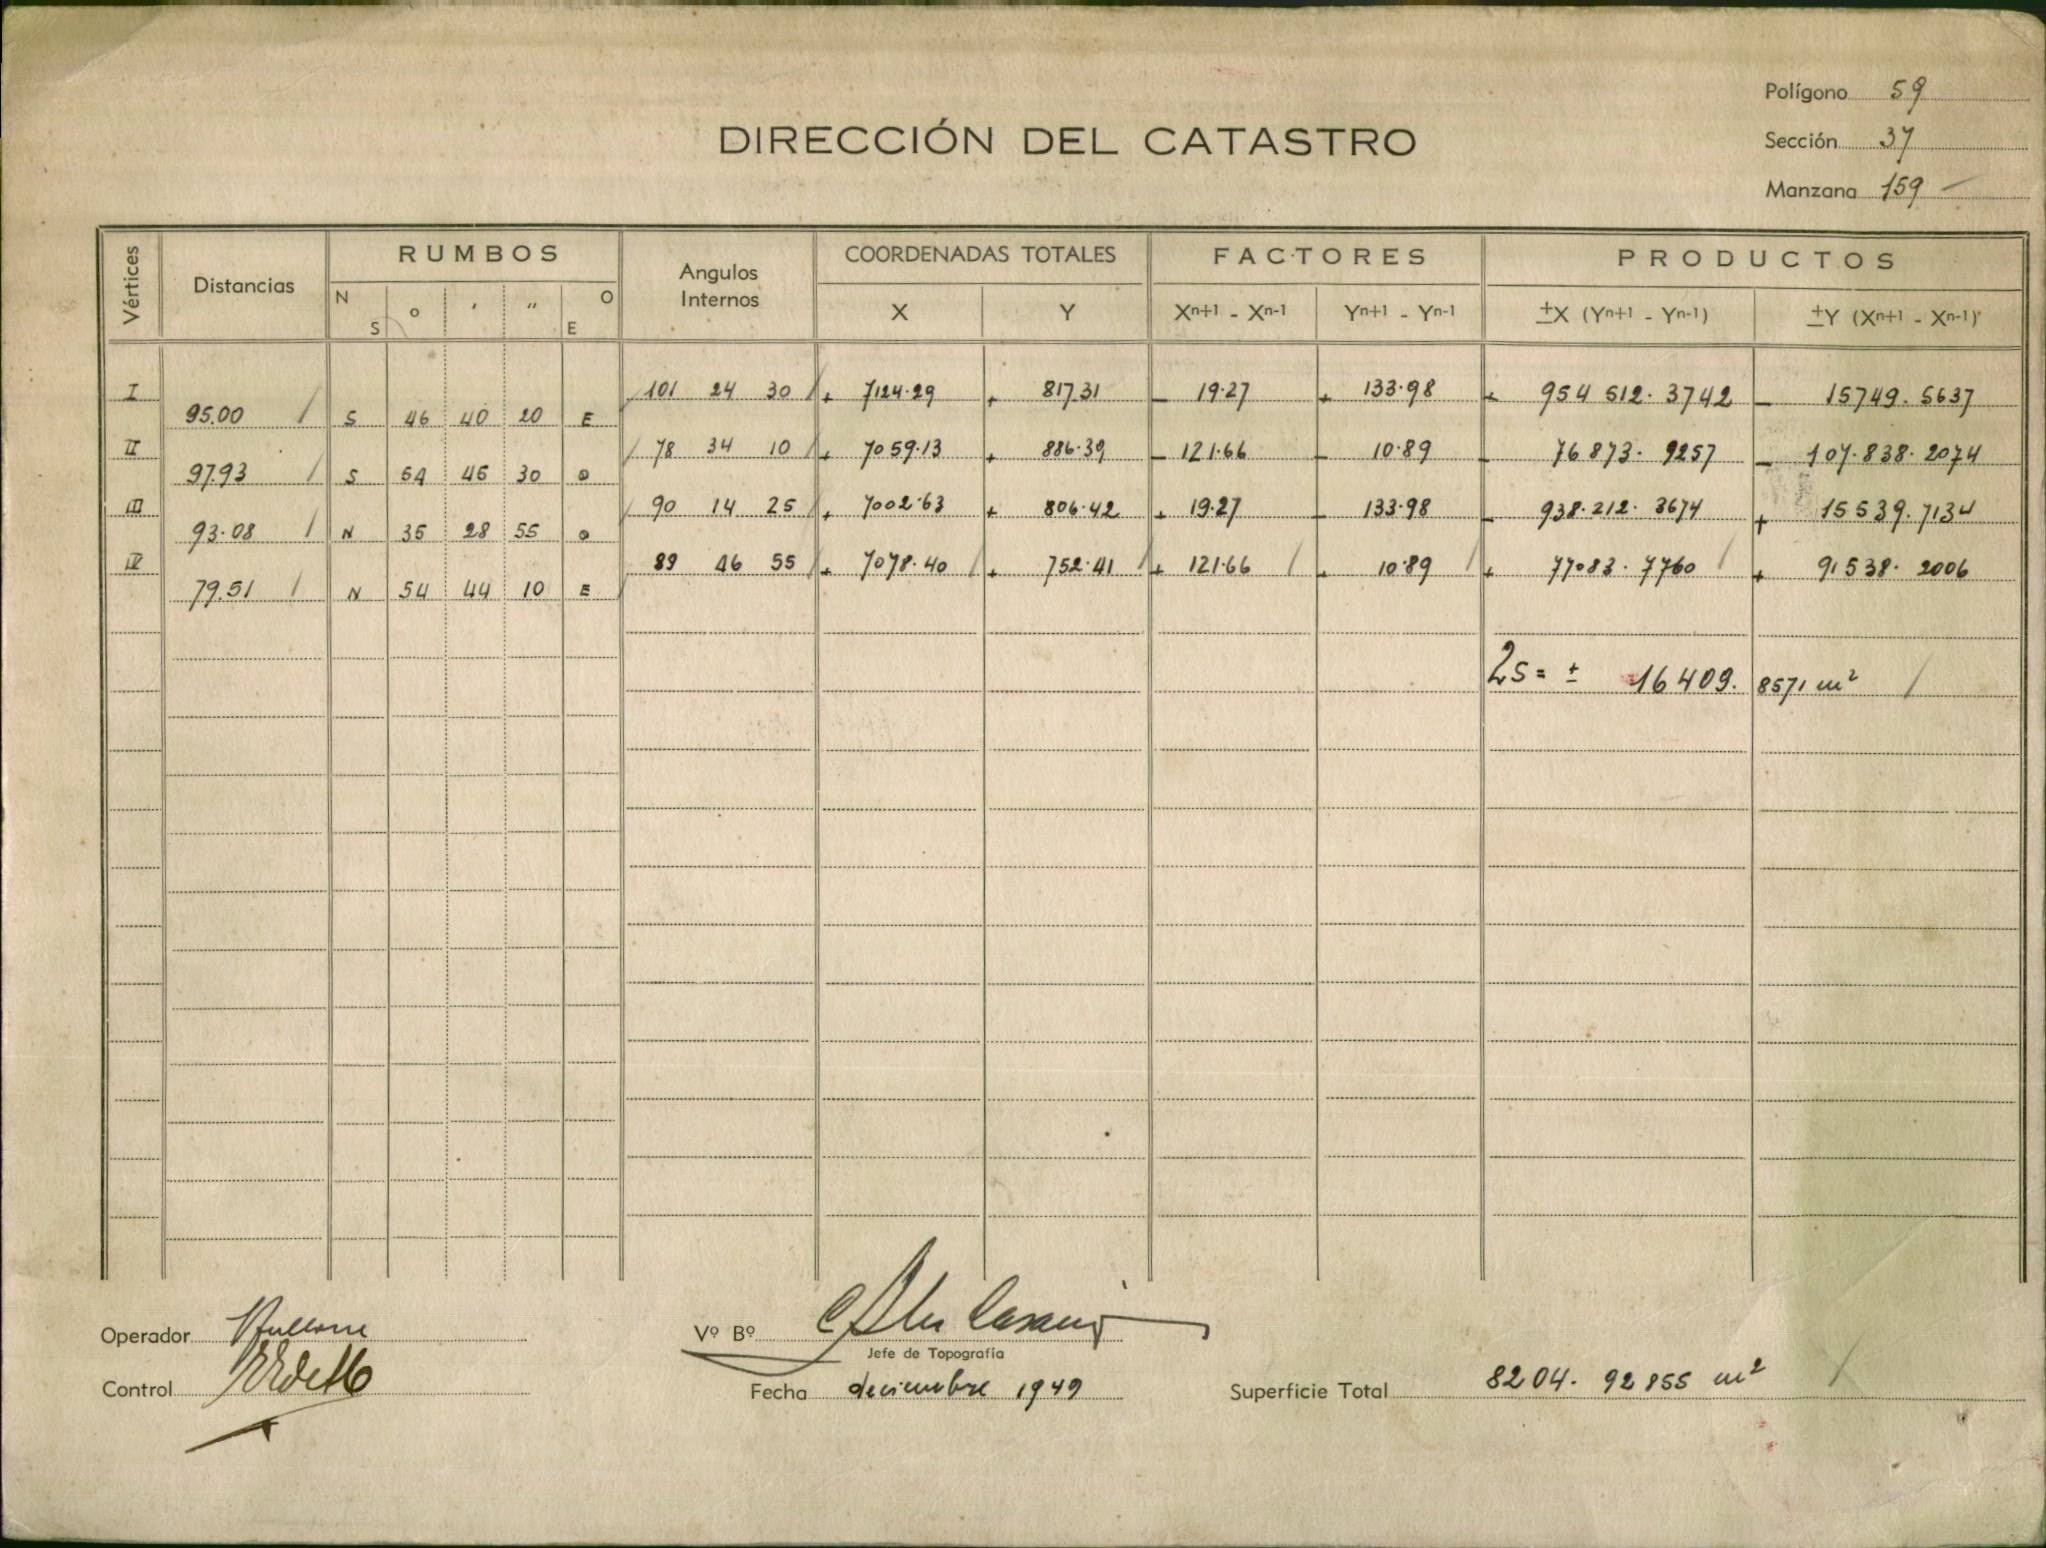 Polígono 59
DIRECCIÓN DEL CATASTRO
Sección 37
Manzana 159
Vértices Distancias RUMBOS Angulos Internos COORDENADAS TOTALES FACTORES PRODUCTOS
N S ° ' " O E X Y Xn+1 - Xn-1 Yn+1 - Yn-1 ±X (Yn+1 - Yn-1) ±Y (Xn+1 - Xn-1)
I 101 24 30 + 7124.29 + 817.31 - 19.27 + 133.98 + 954 512. 3742 - 15749. 5637
95.00 S 46 40 20 E
II 78 34 10 + 7059.13 + 886.39 - 121.66 - 10.89 - 76 873. 9257 - 107.838. 2074
97.93 S 54 45 30 O
III 90 14 25 + 7002.63 + 806.42 + 19.27 - 133.98 - 938.212. 3674 + 15539.7134
93.08 N 35 28 55 O
IV 89 46 55 + 7078.40 + 752.41 + 121.66 + 10.89 + 77083. 7760 + 91538. 2006
79.51 N 54 44 10 E
2s = ± 16409. 8571 m²
Operador
Vº Bº
Jefe de Topografía
Control
Fecha diciembre 1949
Superficie Total 8204. 92855 m²